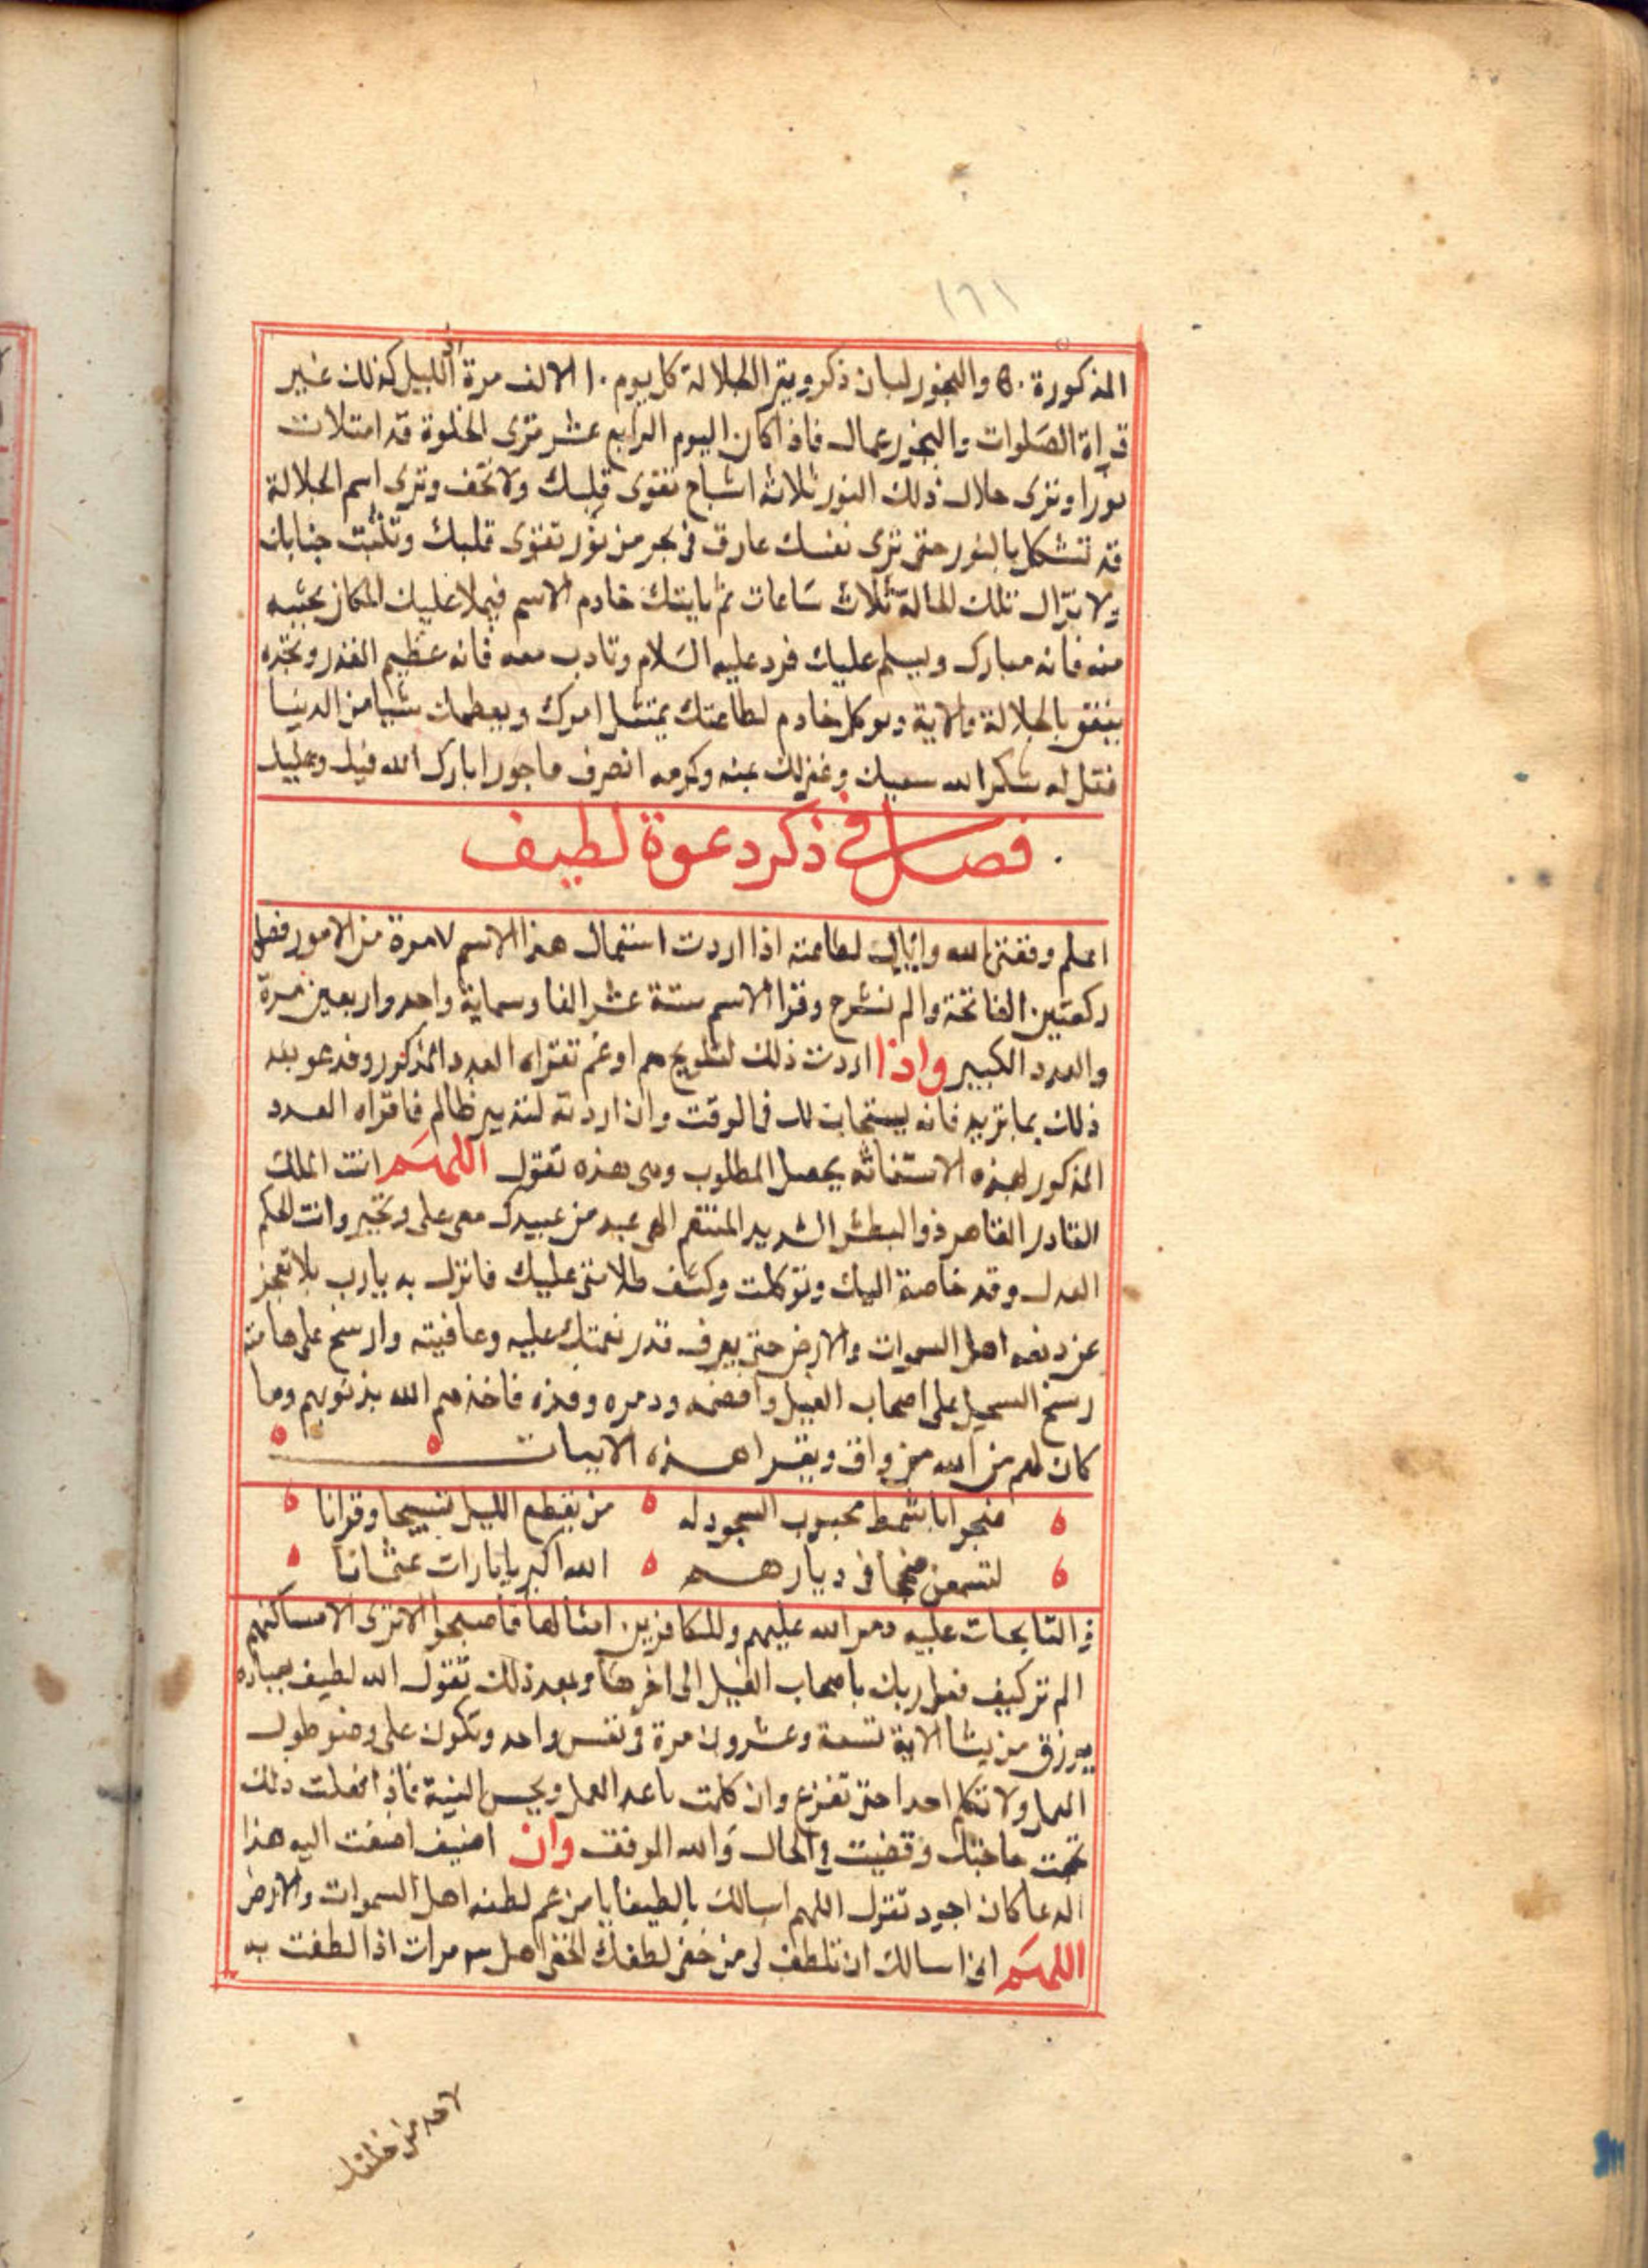 ١٦١
المذكورة والبخور لبان ذكر ويقرا الجلالة كل يوم الالف مرة والليل كذلك غير
قراة الصلوات والبخور عمال فاذا كان اليوم الرابع عشر ترى الخلوة قد امتلات
نورا وترى خلال ذلك النور ثلاثه اشباح تقوى قلبك ولا تخف وترى اسم الجلالة
قد تشكل بالنور حتى ترى نفسك غارق فى بحر من نور تقوى قلبك وتثبت جنابك
ولا تزال تلك الحالة ثلاث ساعات ثم ياتيك خادم الاسم فيملا عليك المكان بحيبه
منه فانه مبارك ويسلم عليك فرد عليه السلام وتادب معه فانه عظيم القدر وتجده
ينفق بالجلالة والاية ويوكل خادم لطاعتك يمتثل امرك ويعطيك شيا من الدنيا
فقل له شكر الله سعيك وغفر لك بمنه وكرمه انصرف ماجورا بارك الله فيك وعليك
فصل فى ذكر دعوة لطيف
اعلم وفقنى الله واياك لطاعته اذا اردت استعمال هذا الاسم لامرة من الامور فصل
ركعتين الفاتحة والم نشرح وقرا الاسم ستة عشر الفا وسماية واحد واربعين مرة
والعدد الكبير واذا اردت ذلك لتفريح هم او غم تقراه العدد المذكور وفدعو بعد
ذلك بما تريد فانه يستجاب لك فى الوقت وان اردته لتدمير ظالم فاقراه العدد
المذكور لهذه الاستغاثه يحصل المطلوب وهى هذه تقول اللهم انت الملك
القادر القاهر ذوالبطش الشديد المنتقم الهى عبد من عبيدك معى على وتجبر وانت الحكم
العدل وقد خاصة اليك وتوكلت وكشف ظلامتى عليك فانزل به يارب بلا تعجز
عن دفعه اهل السموات والارض حتى يعرف قدر نعمتك عليه وعافيته وارسخ على هامته
رسخ السجيل على اصحاب الفيل وافضحه ودمره وفزه فاخذهم الله بذنوبهم وما
كان لهم من الله من واق ويقرا هذه الابيات
ضحوا باشمط محبوب السجود له من يقطع الليل تسبيحا وقرانا
لتسمعن ضجا فى ديارهم الله اكبر يا ثارات عثمانا
فى التابحات عليه دمر الله عليهم وللكافرين امثالها فاصبحوا لا ترى الا مساكنهم
الم تر كيف فعل ربك باصحاب الفيل الى اخرها وبعد ذلك تقول الله لطيف بعباده
يرزق من يشا الاية تسعة وعشرون مرة فى نفس واحد وتكون على وضو طول
العمل ولا تكلم احدا حتى تفرغ وان كلمت باعد العمل ويحسن النية فاذا فعلت ذلك
تمت حاجتك وقضيت فى الحال والله الموفق وان اضيف اضفت اليه هذا
الدعا كان اجود تقول اللهم اسالك يا لطيفا يا من عم لطفه اهل السموات والارض
اللهم انى اسالك ان تلطف لى من خفى لطفك الخفى مرات اذا لطفت به
لاحد من خلقك